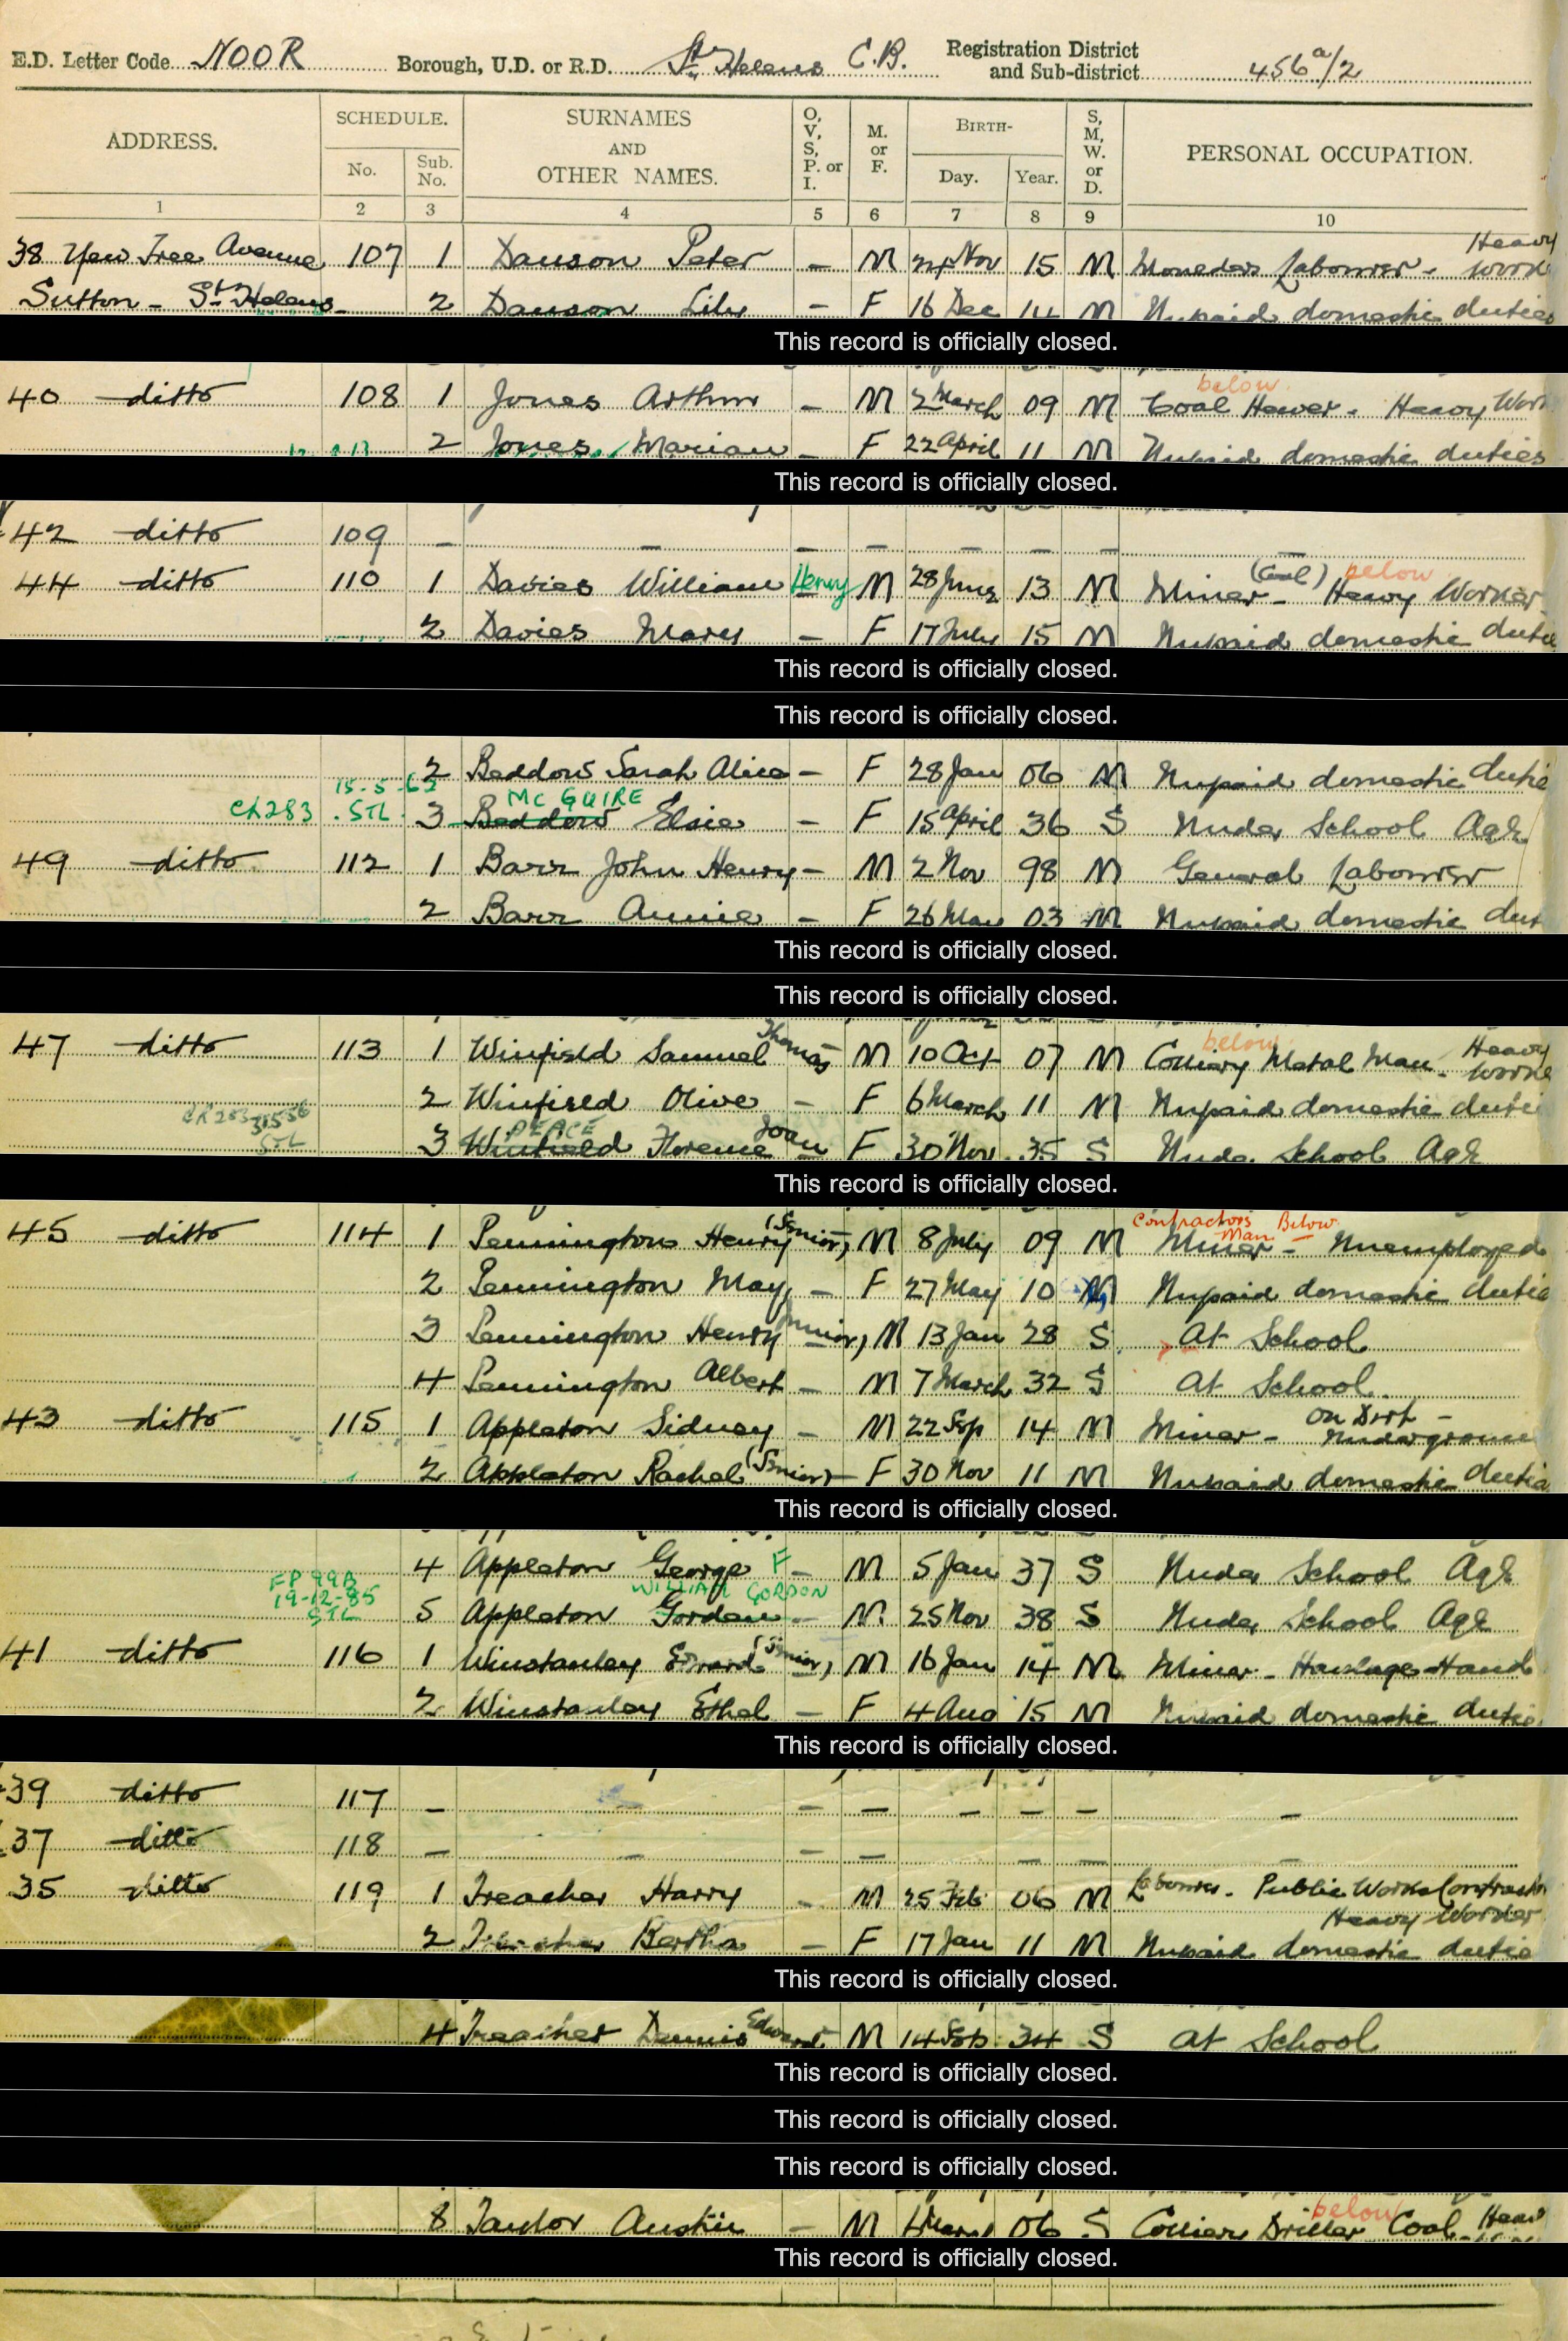 E.D. Letter Code NOOR Borough, U.D. or R.D. St Helens C.B. Registration District and Sub-district 456 a/2
ADDRESS. SCHEDULE. No. Sub. No. SURNAMES AND OTHER NAMES. O, V, S, P. or I. M. or F. BIRTH- Day. Year. S, M, W. or D. PERSONAL OCCUPATION.
1 2 3 4 5 6 7 8 9 10
38 Yew Tree Avenue 107 1 Dawson Peter – M Nov 15 M Labourer - Heavy Work
Sutton - St Helens 2 Dawson Lily – F 16 Dec 14 M Unpaid domestic duties
This record is officially closed.
below
40 ditto 108 1 Jones Arthur – M 2 March 09 M Coal Hewer - Heavy Work
2 Jones Marian – F 22 April 11 M Unpaid domestic duties
This record is officially closed.
42 ditto 109 – – – – – – – –
44 ditto 110 1 Davies William Henry M 28 June 13 M Miner (Coal) below - Heavy Worker
2 Davies Mary – F 17 July 15 M Unpaid domestic dutie
This record is officially closed.
This record is officially closed.
2 Beddow Sarah Alice – F 28 Jan 06 M Unpaid domestic dutie
15-5-62 MC GUIRE
CR283 STL 3 Beddow Elsie – F 15 April 36 S Under School Age
49 ditto 112 1 Barr John Henry – M 2 Nov 98 M General Labourer
2 Barr Annie – F 26 May 03 M Unpaid domestic dut
This record is officially closed.
This record is officially closed.
47 ditto 113 1 Winfield Samuel Thomas M 10 Oct 07 M Colliery below Metal Man - Heavy Work
2 Winfield Olive – F 6 March 11 M Unpaid domestic dutie
CR283 STL PEACE
3 Winfield Florence Joan F 30 Nov 35 S Under School Age
This record is officially closed.
Contractors Man Below
45 ditto 114 1 Pennington Henry (Senior) M 8 July 09 M Miner - Unemployed
2 Pennington May – F 27 May 10 M Unpaid domestic dutie
3 Pennington Henry Junior) M 13 Jan 28 S At School
4 Pennington Albert – M 7 March 32 S At School
43 ditto 115 1 Appleton Sidney – M 22 Sep 14 M Miner - On Dirt - Underground
2 Appleton Rachel (Senior) – F 30 Nov 11 M Unpaid domestic dutie
This record is officially closed.
4 Appleton George F – M 5 Jan 37 S Under School Age
FP 99B 19-12-85 STL WILLIAM GORDON
5 Appleton Gordon – M 25 Nov 38 S Under School Age
41 ditto 116 1 Winstanley (Senior) M 16 Jan 14 M Miner - Haulage Hand
2 Winstanley Ethel – F 4 Aug 15 M Unpaid domestic dutie
This record is officially closed.
39 ditto 117 – – – – – – –
37 ditto 118 – – – – – – –
35 ditto 119 1 Treacher Harry – M 25 Feb 06 M Labourer - Public Works Contractor
Heavy Worker
2 Treacher Bertha – F 17 Jan 11 M Unpaid domestic dutie
This record is officially closed.
4 Treacher Dennis Edward M 14 Sep 34 S At School
This record is officially closed.
This record is officially closed.
This record is officially closed.
8 Taylor Austin – M 06 S Colliery Driller below Coal
This record is officially closed.